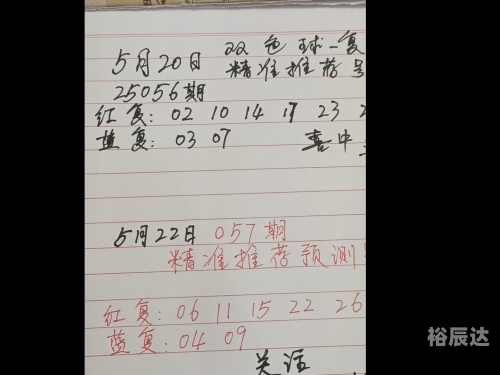 5月20日 双色球一复
精准推荐号
25056期
红复: 02 10 14 17 23
蓝复: 03 07
喜中
5月22日 057期
精准推荐预测
红复: 06 11 15 22 26
蓝复: 04 09
关注
裕辰达